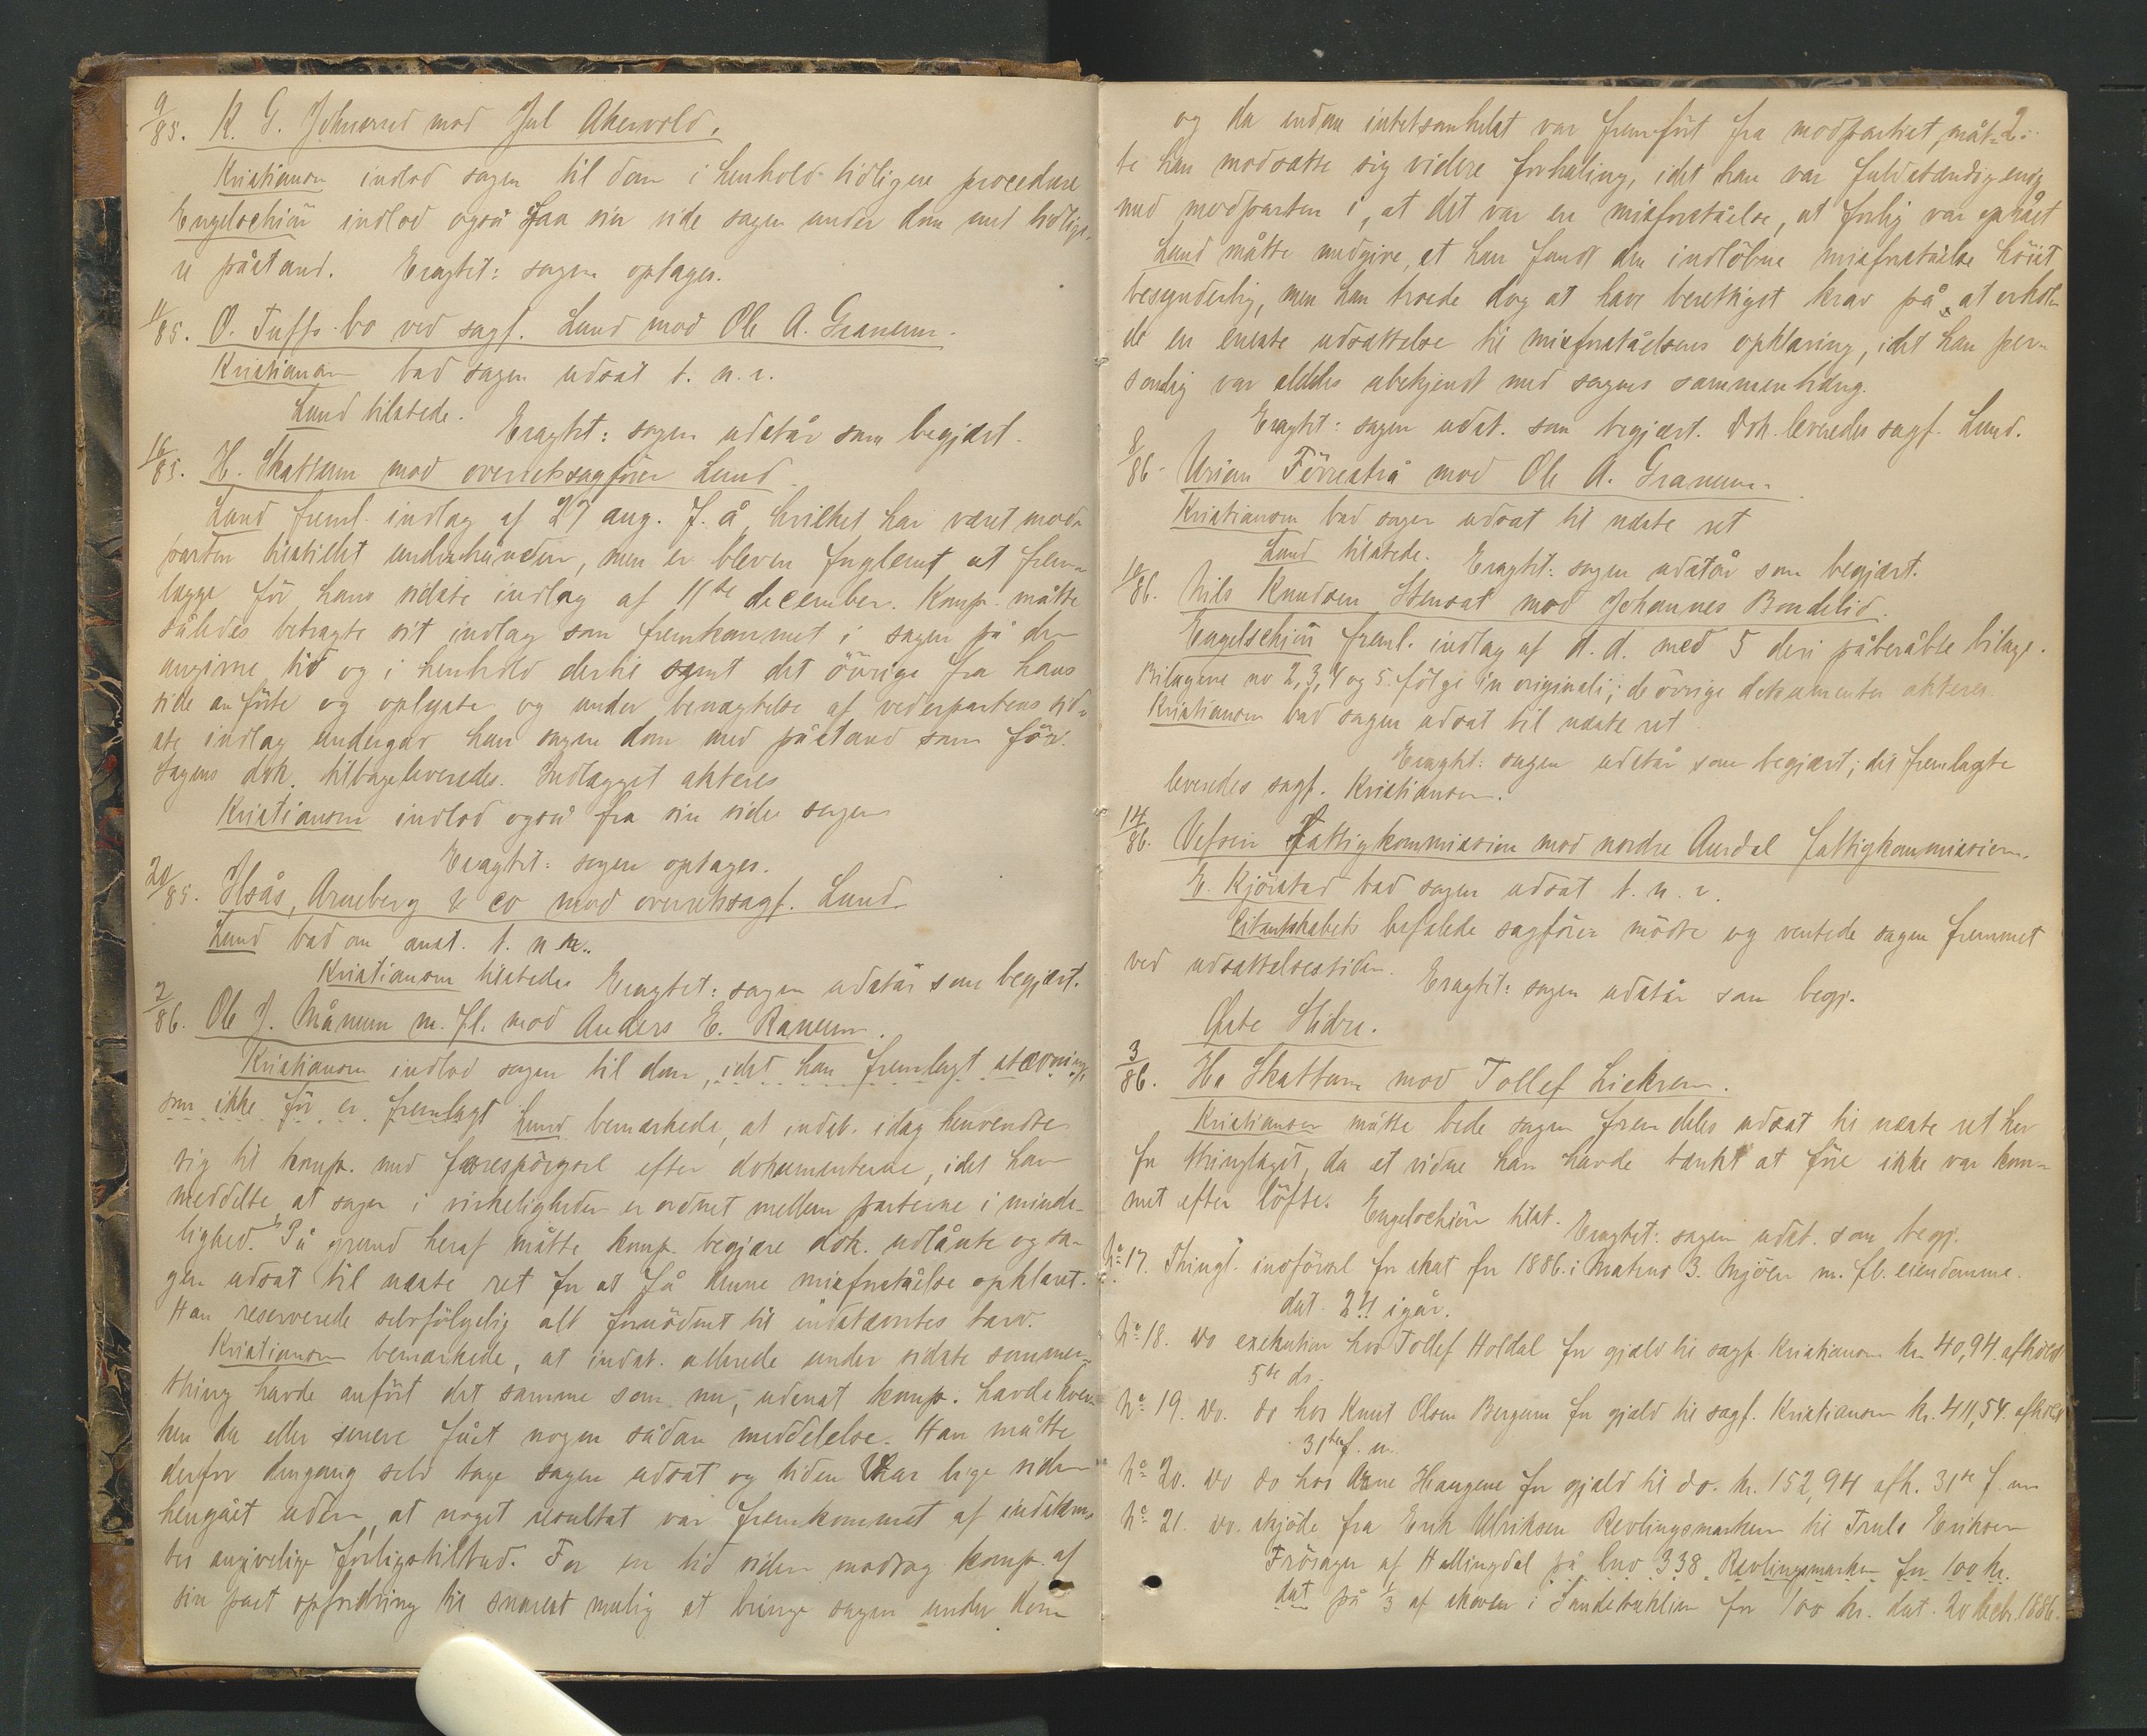 9/85. K. G. Johnsrud mod Jul Akervold.
Kristiansen indlod sagen til dom i henhold tidligere procedure
Engelschiøn indlod også fra sin side sagen under dom med tidlige-
re påstand. Eragtet: sagen optages.
11/85. O. Tuffs bo ved sagf. Lund mod Ole A. Granum.
Kristiansen bad sagen udsat t. n. r.
Lund tilstede. Eragtet: sagen udstår som begjært.
16/85. H. Skattum mod overretssagfører Lund.
Lund freml. indlæg af 27 aug. f. å, hvilket har været mod-
parten tilstillet underhånden, men er bleven forglemt at frem-
lægge før hans sidste indlæg af 11te december. Komp. måtte
således betragte sit indlæg som fremkommet i sagen på den
angivne tid og i henhold dertil samt det øvrige fra hans
side anførte og oplyste og under benægtelse af vederpartens sid-
ste indlæg undergav han sagen dom med påstand som før.
Sagens dok. tilbageleveredes. Indlægget akteres
Kristiansen indlod også fra sin side sagen
Eragtet: sagen optages.
20/85. Ilsås, Arneberg & co mod overretssagf. Lund
Lund bad om anst. t. n r.
Kristiansen tilstede. Eragtet: sagen udstår som begjært.
2/86. Ole J. Månum m. fl. mod Anders E. Ranum.
Kristiansen indlod sagen til dom, idet han fremlagt stævning,
som ikke før er fremlagt Lund bemærkede, at indst. idag henvendte
sig til komp. med forespørgsel efter dokumenterne, idet han
meddelte, at sagen i virkeligheden er ordnet mellem parterne i minde-
lighed. På grund heraf måtte komp. begjære dok. udlånte og sa-
gen udsat til næste ret for at få denne misforståelse opklaret.
Han reserverede selvfølgelig alt fornødent til indstævntes tarv.
Kristiansen bemærkede, at indst. allerede under sidste sommer-
thing havde anført det samme som nu, udenat komp. havde hver-
ken da eller senere fået nogen sådan meddelelse. Han måtte
derfor dengang selv tage sagen udsat og tiden var lige siden
hengået uden, at noget resultat var fremkommet af indstævn-
tes angivelige forligstilbud. For en tid siden modtog komp. af
sin part opfordring til snarest mulig at bringe sagen under dom
2.
og da endnu intetsomhelst var fremført fra modpartiet, måt-
te han modsætte sig videre forhaling, idet han var fuldstændig enig
med modparten i, at det var en misforståelse, at forlig var opnået
Lund måtte medgive, at han fandt den indløbne misforståelse høist
besynderlig, men han troede dog at have berettiget krav på at erhol-
de en eneste udsættelse til misforståelsens opklaring, idet han per-
sonlig var aldeles ubekjendt med sagens sammenhæng.
Eragtet: sagen udst. som begjært. Dok. leveredes sagf. Lund.
8/86 Urian Førrestrå mod Ole A. Granum.
Kristiansen bad sagen udsat til næste ret
Lund tilstede. Eragtet: sagen udstår som begjært.
10/86. Nils Knudsen Stensat mod Johannes Bondelid.
Engelschiøn freml. indlæg af d. d. med 5 deri påberåbte bilage.
Bilagene no 2, 3, 4 og 5 følge in originali; de øvrige dokumenter akteres.
Kristiansen bad sagen udsat til næste ret
Eragtet: sagen udstår som begjært; det fremlagte
leveredes sagf. Kristiansen.
14/86. Vefsen fattigkommission mod nordre Aurdal fattigkommission.
E. Kjørstad bad sagen udsat t. n. r.
Citantskabets befalede sagfører mødte og ventede sagen fremmet
ved udsættelsestiden. Eragtet: sagen udstår som begj.
Østre Slidre.
3/86. H. Skattum mod Tollef Liekren.
Kristiansen måtte bede sagen fremdeles udsat til næste ret her
for thinglaget, da et vidne han havde tænkt at føre ikke var kom-
met efter løfte. Engelschiøn tilst. Eragtet: sagen udst. som begj.
No 17. Thingl. indførsel for skat for 1886. i Matnr 3. Mjøen m. fl. eiendomme.
dat. 24 igår.
No 18. do exekution hos Tollef Holdal for gjæld til sagf. Kristiansen kr. 40,94. afholdt
5te ds.
No 19. do. do hos Knut Olsen Bergum for gjæld til sagf. Kristiansen kr. 41,54. afholdt
31te f. m.
No 20. do do hos Arne Haugene for gjæld til do. kr. 152,94 afh. 31te f. m
No 21. do. skjøde fra Erik Ulriksen Revlingsmarken til Truls Eriksen
Frøsager af Hallingdal på lno 338 Revlingsmarken for 100 kr.
dat på 1/3 af skoven i Sandebrækliен for 100 kr. dat. 20 decbr. 1886.